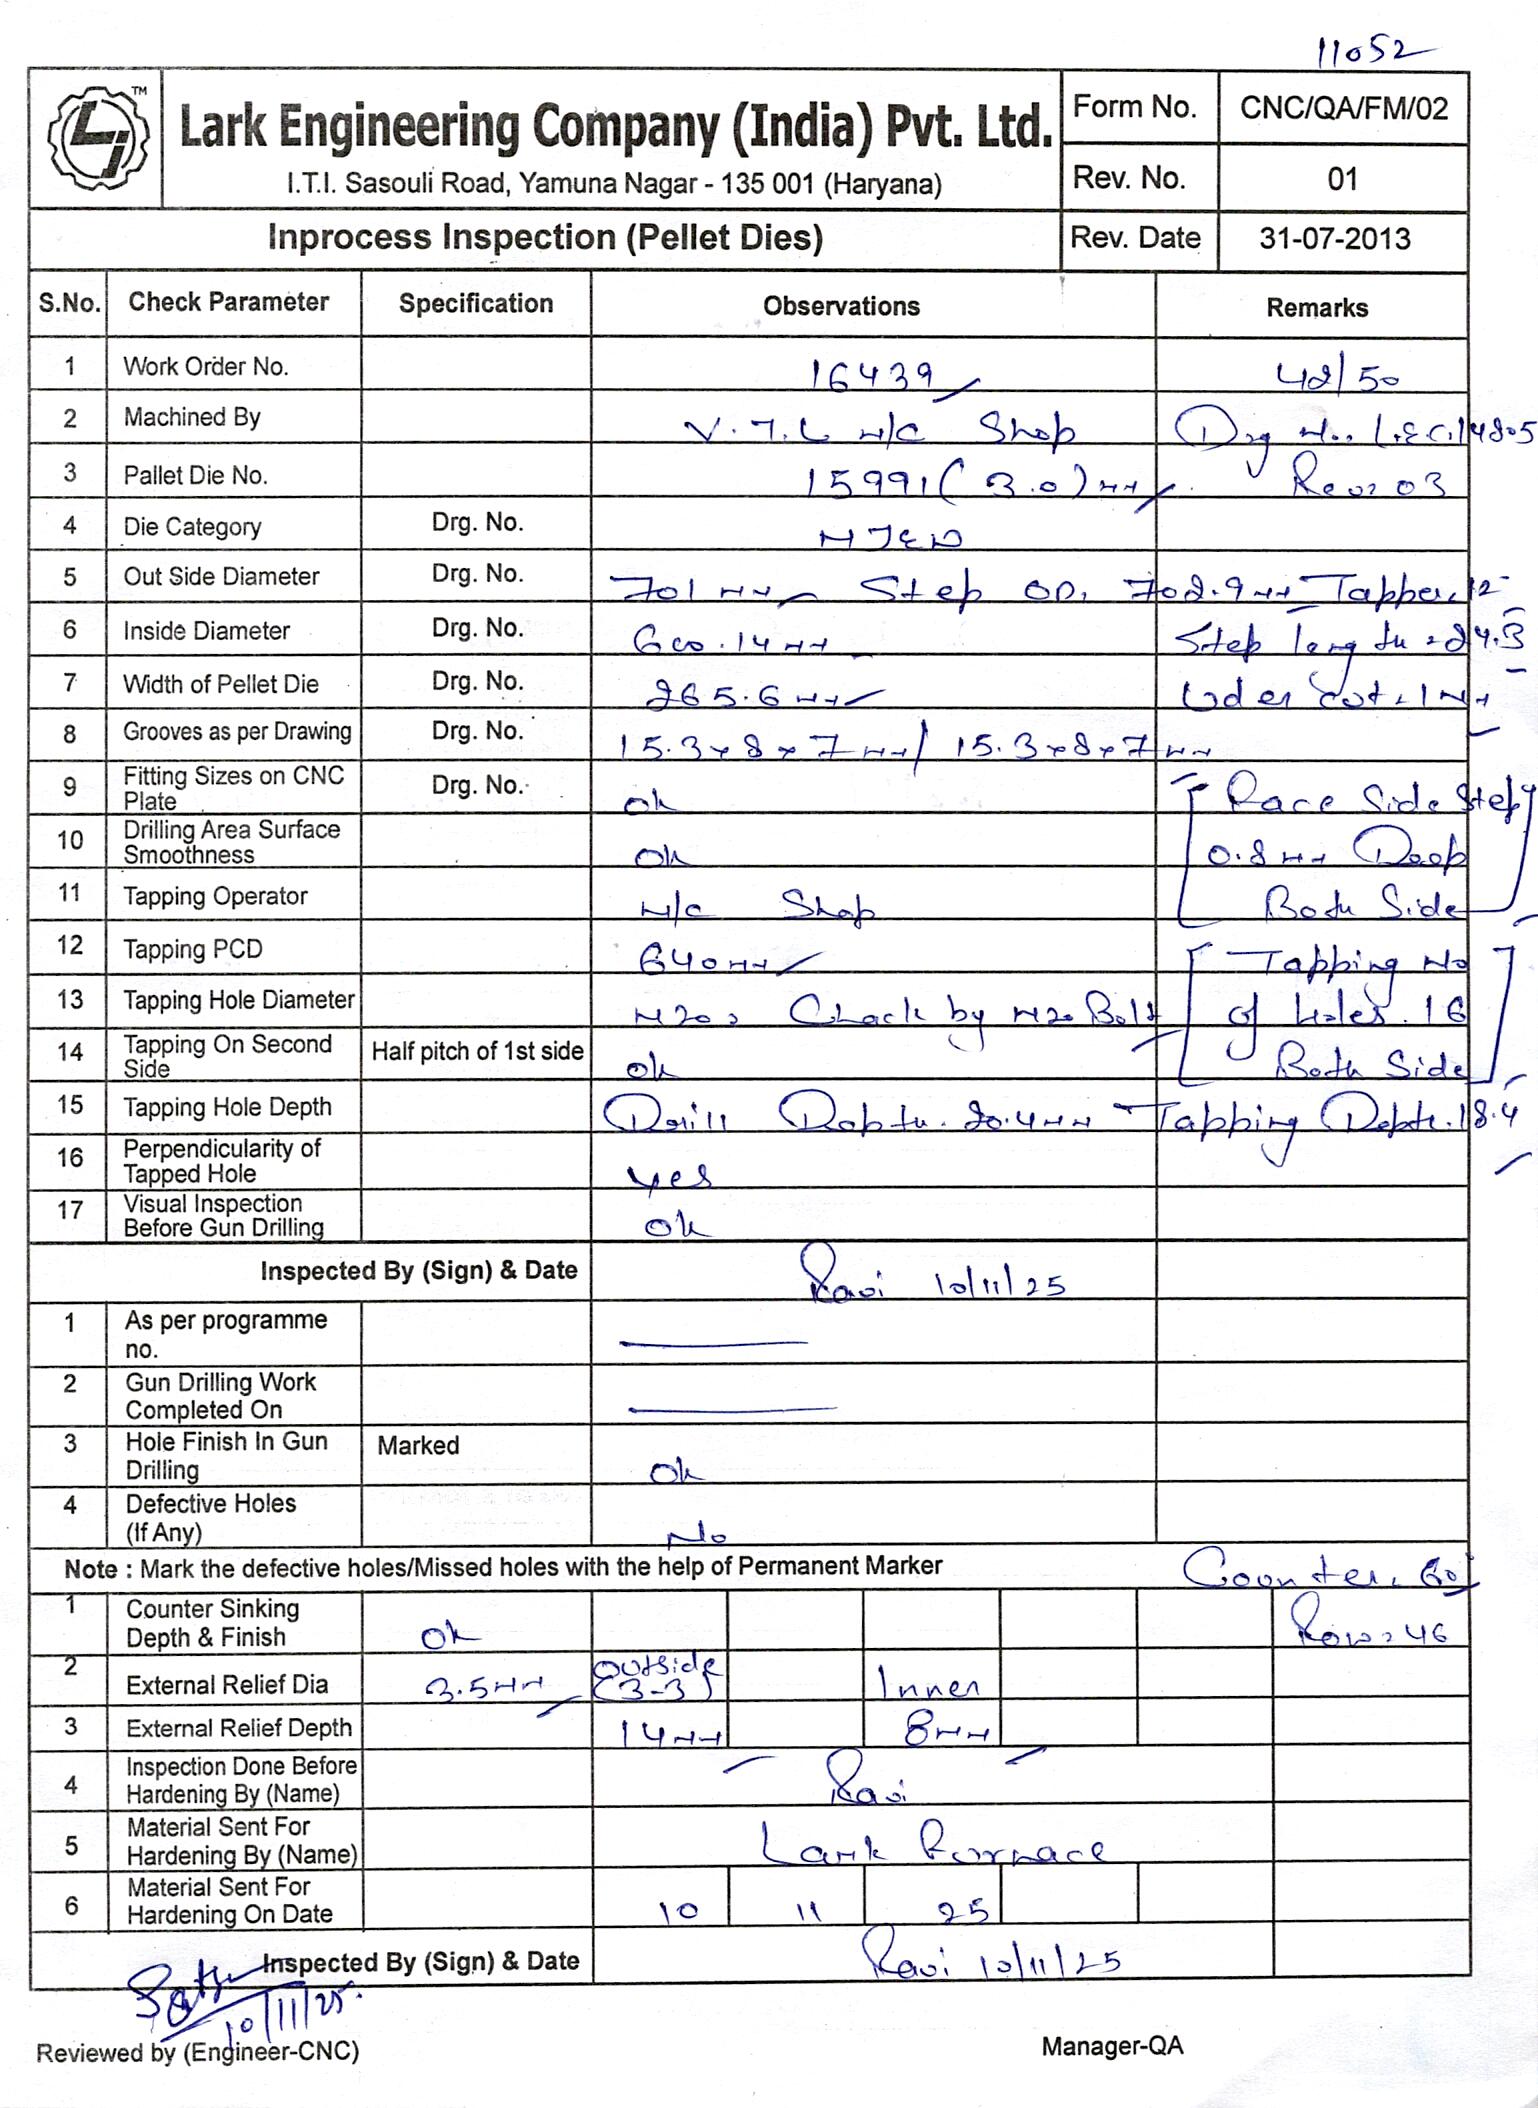 11052
Lark Engineering Company (India) Pvt. Ltd.
I.T.I. Sasouli Road, Yamuna Nagar - 135 001 (Haryana)
Form No. CNC/QA/FM/02
Rev. No. 01
Inprocess Inspection (Pellet Dies)
Rev. Date 31-07-2013
S.No. Check Parameter Specification Observations Remarks
1 Work Order No. 16439 42/50
2 Machined By V.T.L M/C Shop Drg No. L.E.C.14805
3 Pallet Die No. 15991 (3.0)mm Rev: 03
4 Die Category Drg. No.
5 Out Side Diameter Drg. No. 701 mm Step OD. 702.9mm Tapper. 12
6 Inside Diameter Drg. No. 600.14mm Step length = 24.3
7 Width of Pellet Die Drg. No. 265.6mm Uder cut. 1mm
8 Grooves as per Drawing Drg. No. 15.3x8x7mm/ 15.3x8x7mm
9 Fitting Sizes on CNC Plate Drg. No. ok Race Side Step
10 Drilling Area Surface Smoothness ok 0.8mm Deep
11 Tapping Operator M/C Shop Both Side
12 Tapping PCD 640mm Tapping No
13 Tapping Hole Diameter M20 Check by M20 Bolt of holes. 16
14 Tapping On Second Side Half pitch of 1st side ok Both Side
15 Tapping Hole Depth Drill Depth. 20.4mm Tapping Depth. 18.4
16 Perpendicularity of Tapped Hole yes
17 Visual Inspection Before Gun Drilling ok
Inspected By (Sign) & Date Ravi 10/11/25
1 As per programme no.
2 Gun Drilling Work Completed On
3 Hole Finish In Gun Drilling Marked ok
4 Defective Holes (If Any) No
Note : Mark the defective holes/Missed holes with the help of Permanent Marker Counter. 60
1 Counter Sinking Depth & Finish ok Row = 46
2 External Relief Dia 3.5mm Outside (3-3) Inner
3 External Relief Depth 14mm 8mm
4 Inspection Done Before Hardening By (Name) Ravi
5 Material Sent For Hardening By (Name) Lark Furnace
6 Material Sent For Hardening On Date 10 11 25
Inspected By (Sign) & Date Ravi 10/11/25
10/11/25.
Reviewed by (Engineer-CNC) Manager-QA